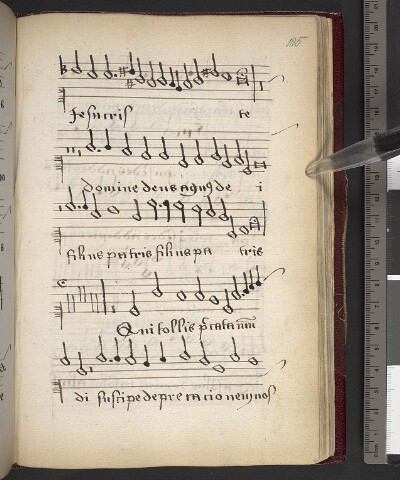 195
Jesu cris te
domine deus agnus de i
filius patris filius pa tris
Qui tollis pctā mū
di suscipe depre ca cionē nos